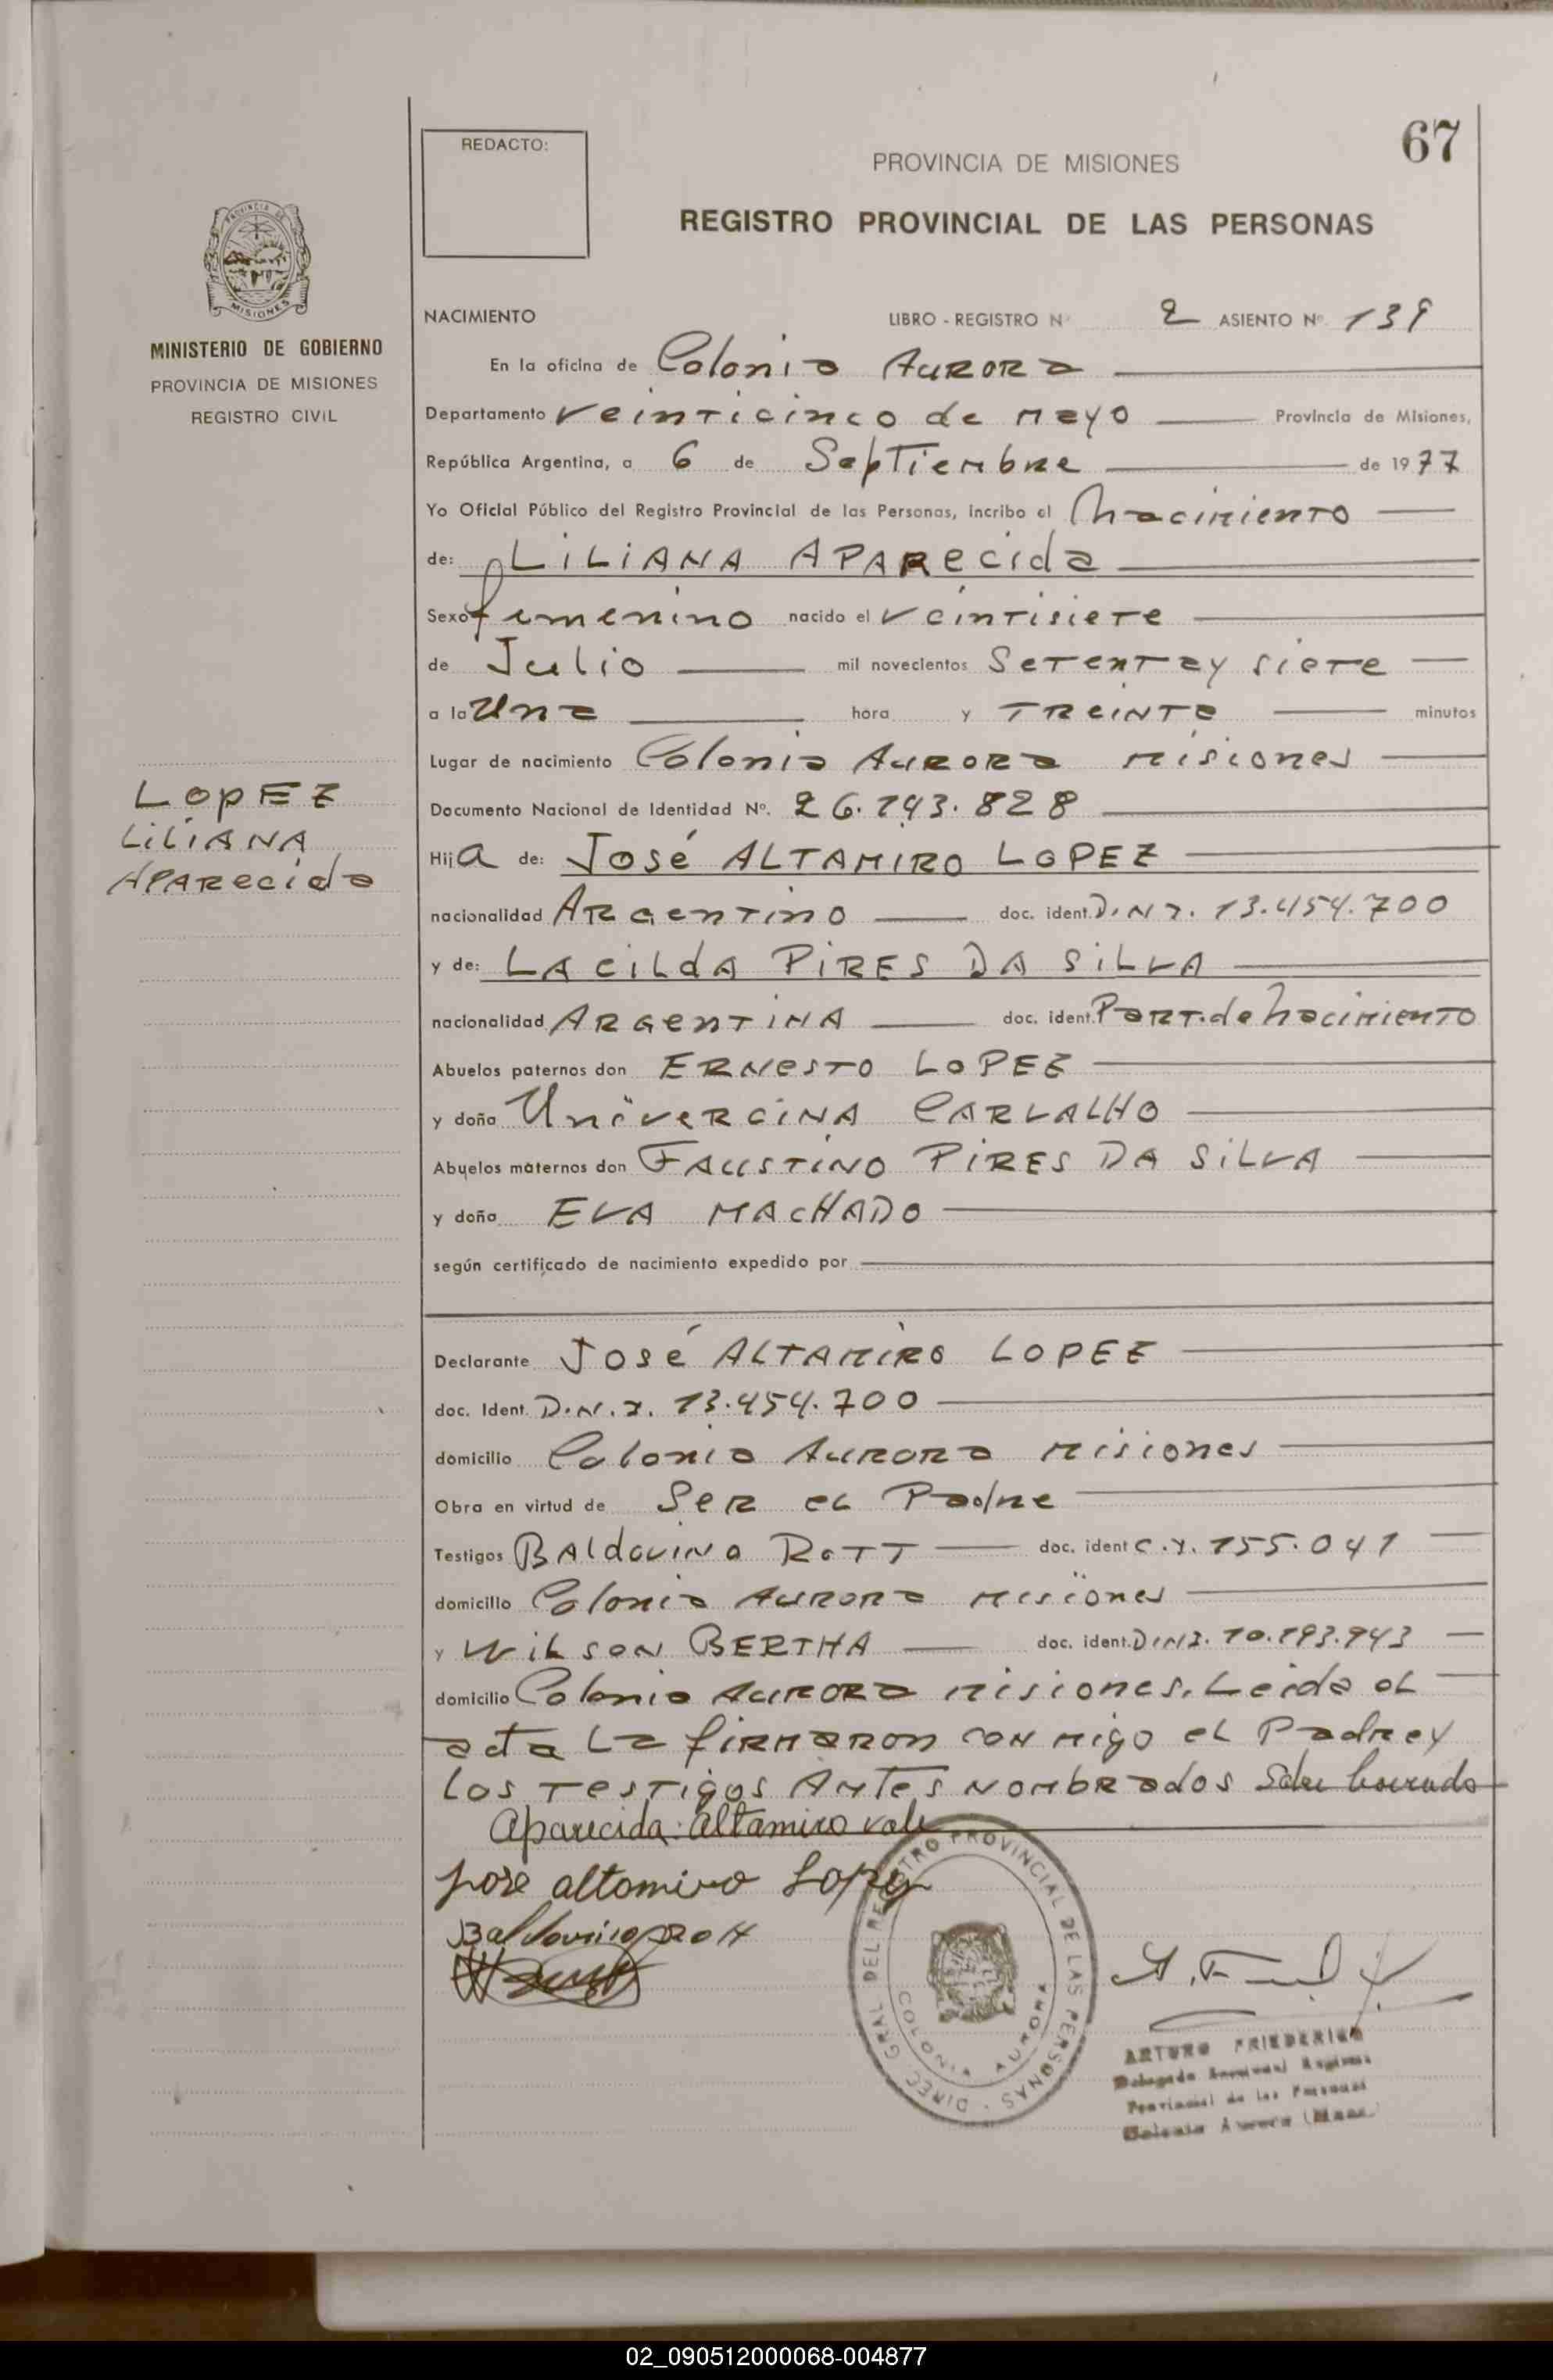 67
REDACTO:
PROVINCIA DE MISIONES
REGISTRO PROVINCIAL DE LAS PERSONAS
PROVINCIA DE
MISIONES
MINISTERIO DE GOBIERNO
PROVINCIA DE MISIONES
REGISTRO CIVIL
NACIMIENTO LIBRO - REGISTRO Nº 2 ASIENTO Nº 139
En la oficina de Colonia Aurora
Departamento Veinticinco de Mayo Provincia de Misiones,
República Argentina, a 6 de Septiembre de 1977
Yo Oficial Público del Registro Provincial de las Personas, incribo el Nacimiento
de: LILIANA APARecida
Sexo femenino nacido el veintisiete
de Julio mil novecientos Setenta y siete
a la Una hora y TReinta minutos
Lugar de nacimiento Colonia Aurora Misiones
LOpEZ
LiLiANA
APARecida
Documento Nacional de Identidad Nº. 26.193.828
Hija de: José ALTAMIRO LOPEZ
nacionalidad Argentino doc. ident. D.N.I. 13.454.700
y de: LACILdA PIRES DA SILVA
nacionalidad ARgenTINA doc. ident. Part. de Nacimiento
Abuelos paternos don ERNesTO LOPEZ
y doña UniveRCINA CARVALHO
Abuelos maternos don FAUSTINO PIRES DA SILVA
y doña EVA MACHADO
según certificado de nacimiento expedido por
Declarante José ALTAMIRO LOPEZ
doc. Ident. D.N.I. 13.454.700
domicilio Colonia Aurora Misiones
Obra en virtud de Ser el Padre
Testigos BALdovino RoTT doc. ident C.I. 155.041
domicilio Colonia Aurora Misiones
y WILSON BERTHA doc. ident. D.N.I. 10.193.943
domicilio Colonia Aurora Misiones. Leida el
acta La firmaron con migo el Padre y
Los Testigos Antes nombrados Sobre borrado
Aparecida: Altamiro vale
jose altamiro Lopez
Baldovino Rott
DIREC. GRAL. DEL REGISTRO PROVINCIAL DE LAS PERSONAS
COLONIA AURORA
ARTURO FRIEDERICH
Provincial de las Personas
Colonia Aurora (Mnes.)
02_090512000068-004877